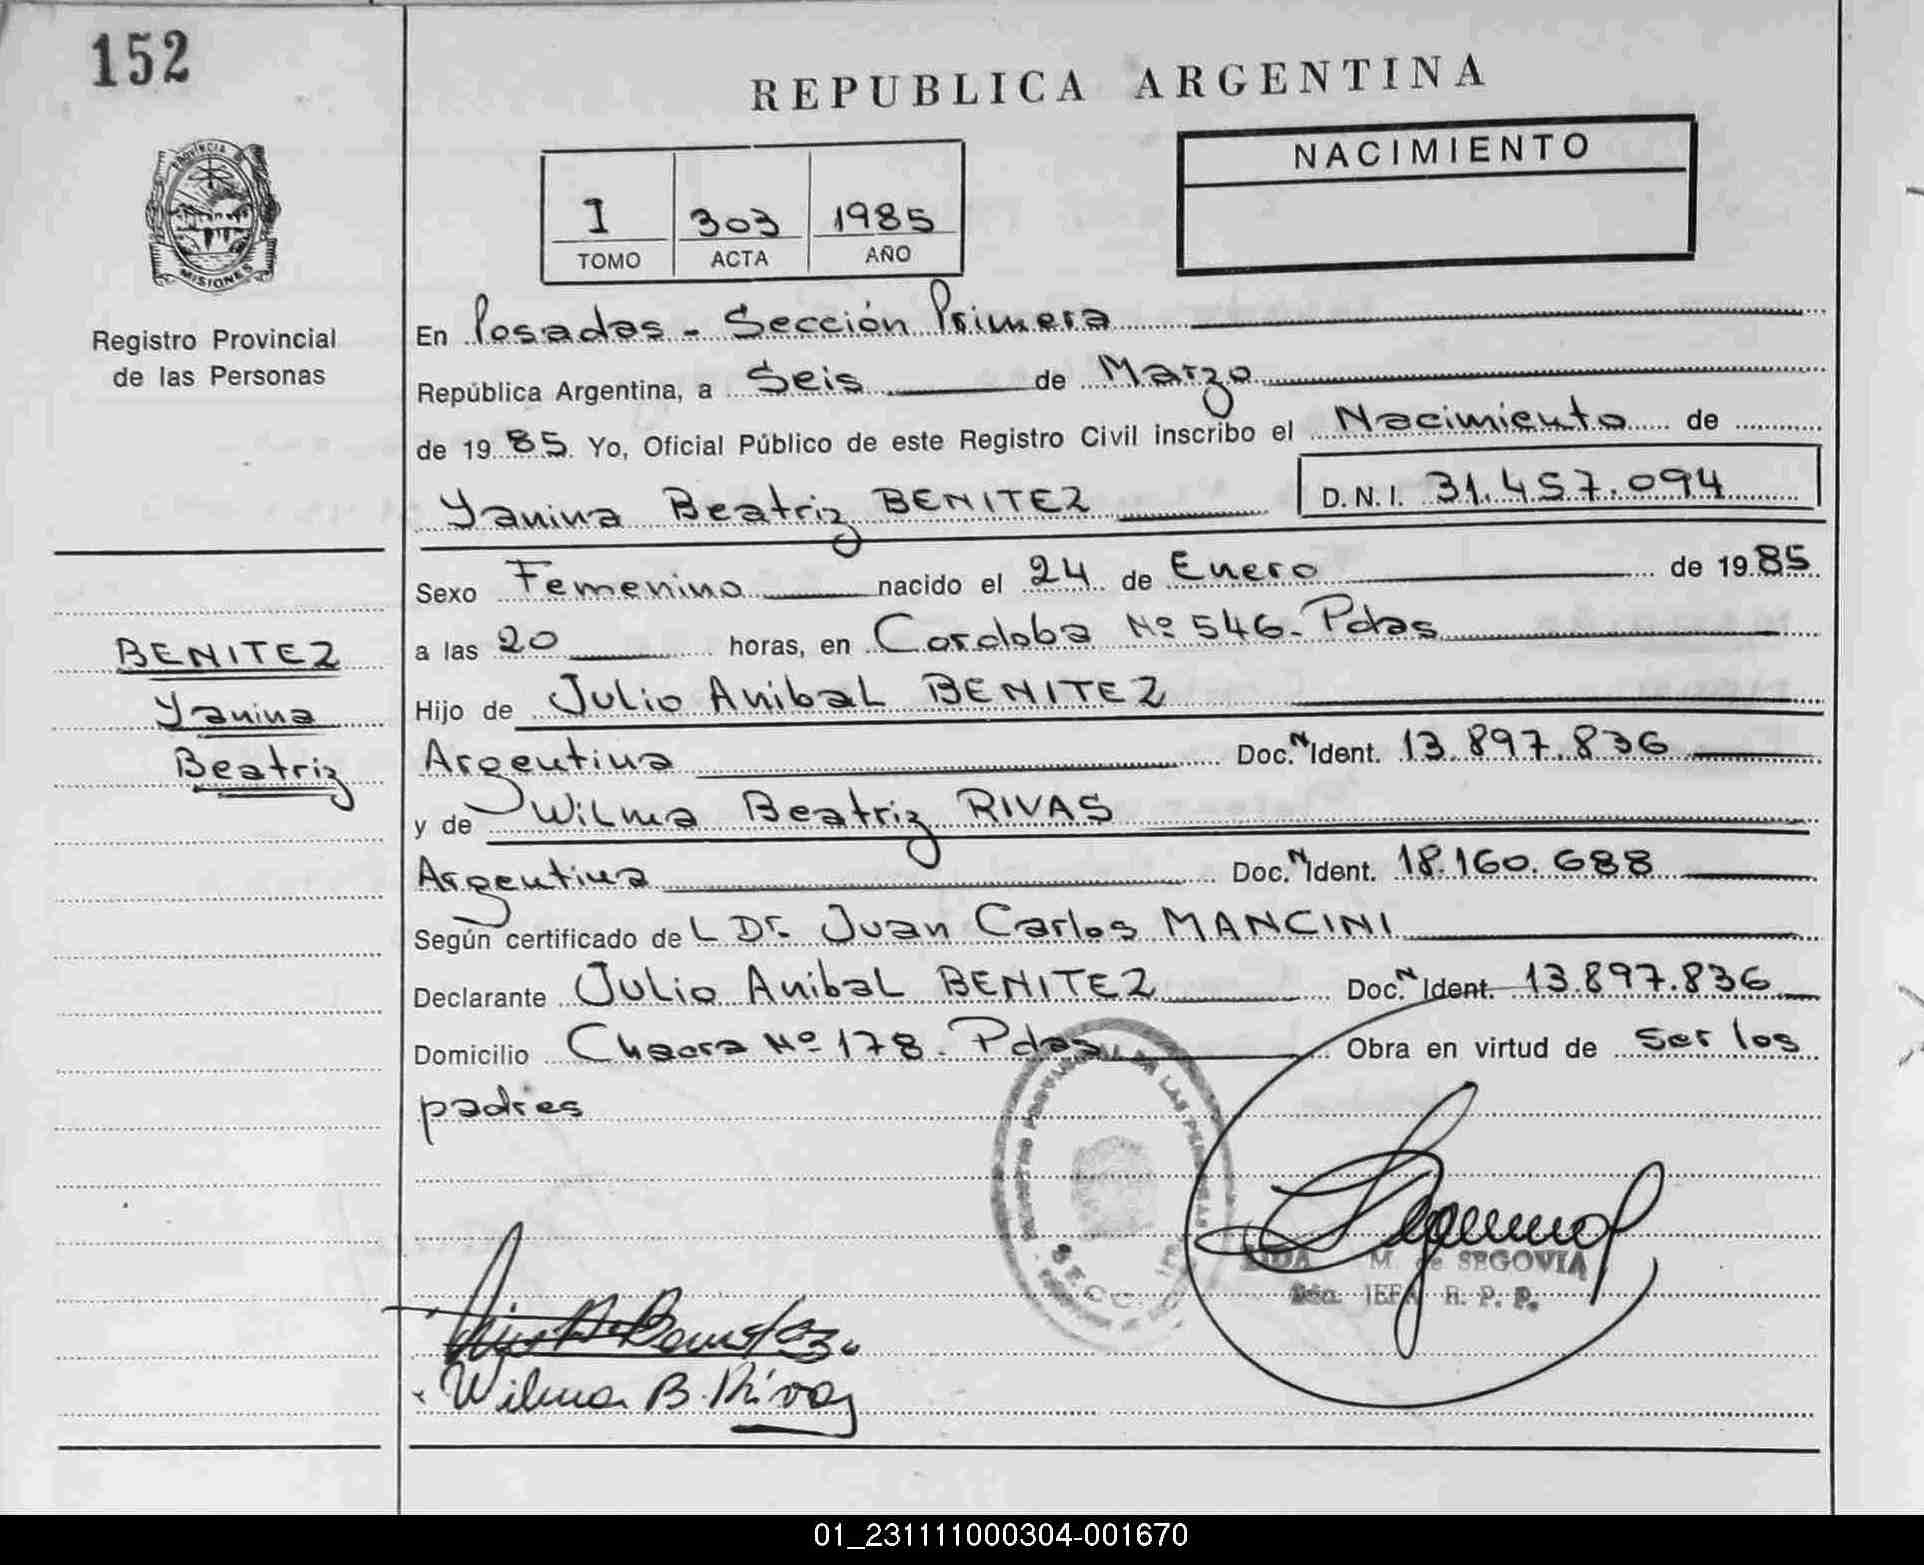 152
REPUBLICA ARGENTINA
NACIMIENTO
I 303 1985
TOMO ACTA AÑO
PROVINCIA DE
MISIONES
Registro Provincial
de las Personas
En Posadas - Sección Primera
República Argentina, a Seis de Marzo
de 1985 Yo, Oficial Público de este Registro Civil inscribo el Nacimiento de
Yanina Beatriz BENITEZ D.N.I. 31.457.094
Sexo Femenino nacido el 24 de Enero de 1985
a las 20 horas, en Cordoba Nº 546- Pdas
Hijo de Julio Anibal BENITEZ
Argentina Doc. N Ident. 13.897.836
y de Wilma Beatriz RIVAS
Argentina Doc. N Ident. 18.160.688
Según certificado de L Dr. Juan Carlos MANCINI
Declarante Julio Anibal BENITEZ Doc. N Ident. 13.897.836
Domicilio Chacra Nº 178. Pdas Obra en virtud de ser los
padres
BENITEZ
Yanina
Beatriz
LAS PERSONAS
SECC. 1ra
M. de SEGOVIA
JEFA R. P. P.
Benitez
Wilma B. Rivas
01_231111000304-001670